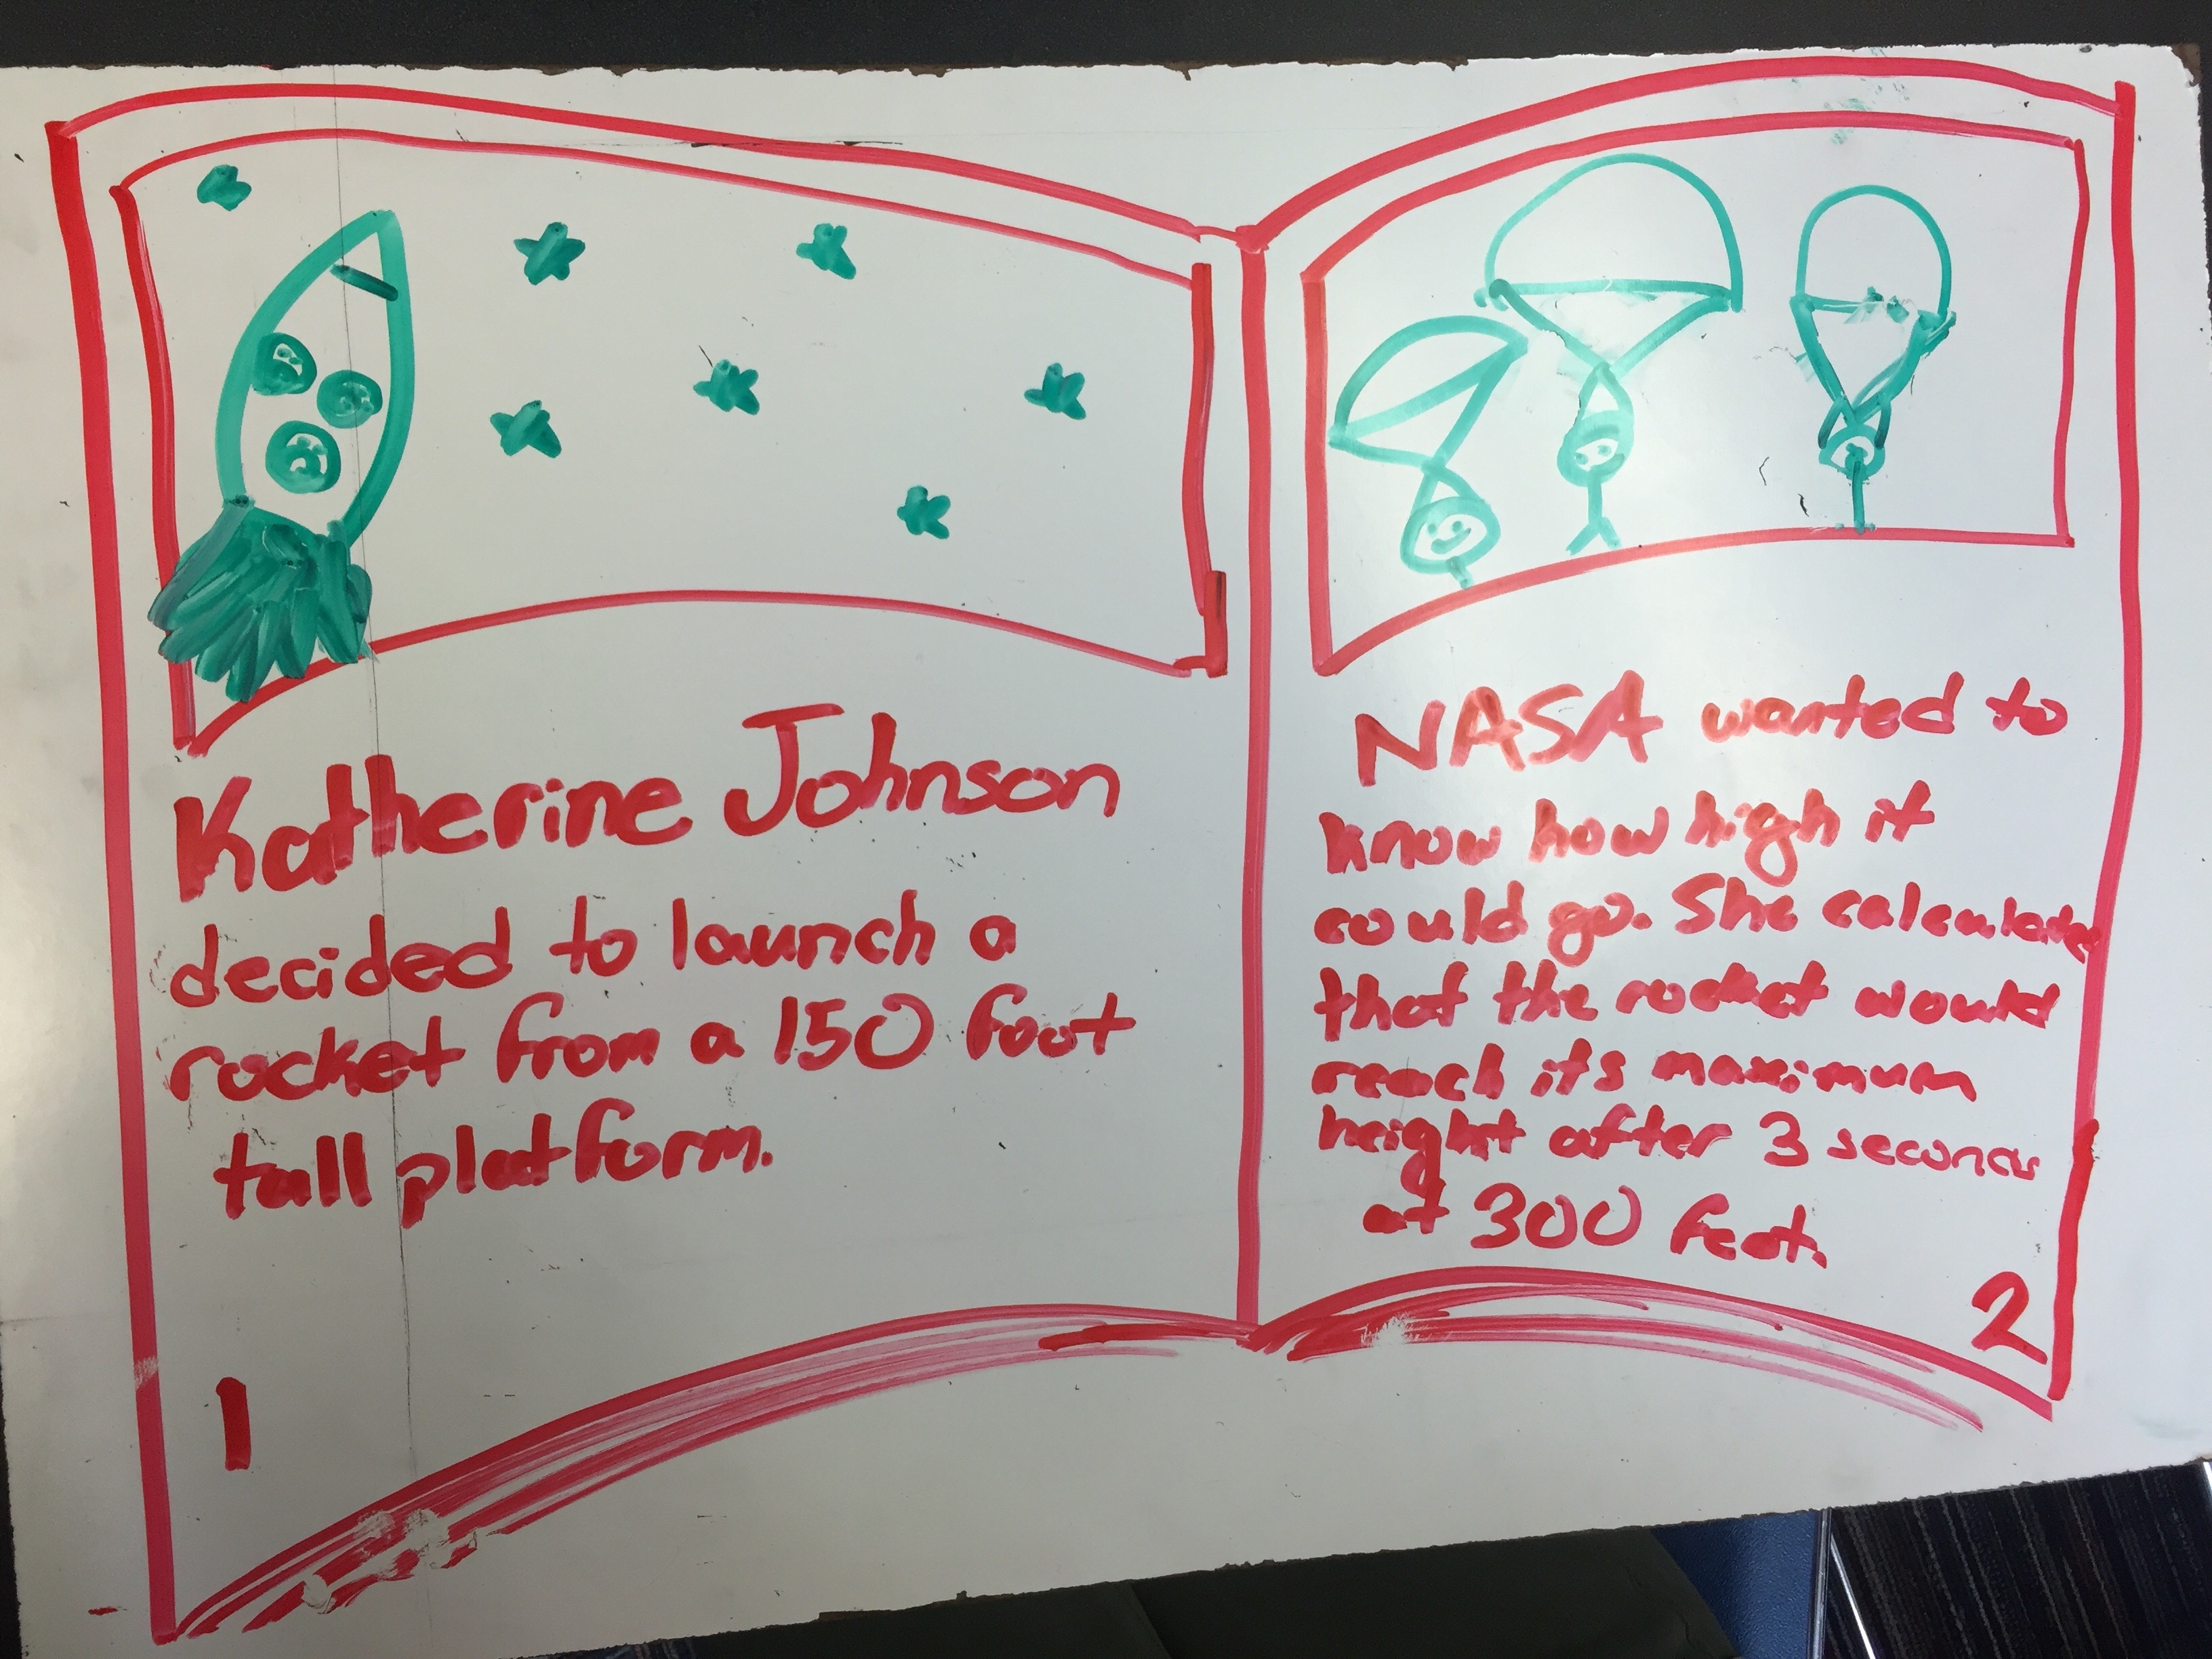 Katherine Johnson
decided to launch a
rocket from a 150 foot
tall platform.
1
NASA wanted to
know how high it
could go. She calculated
that the rocket would
reach its maximum
height after 3 seconds
at 300 feet.
2